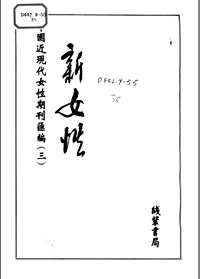 國近現代女性期刊匯編(三)
新女性
D442.9-55
35
綫裝書局